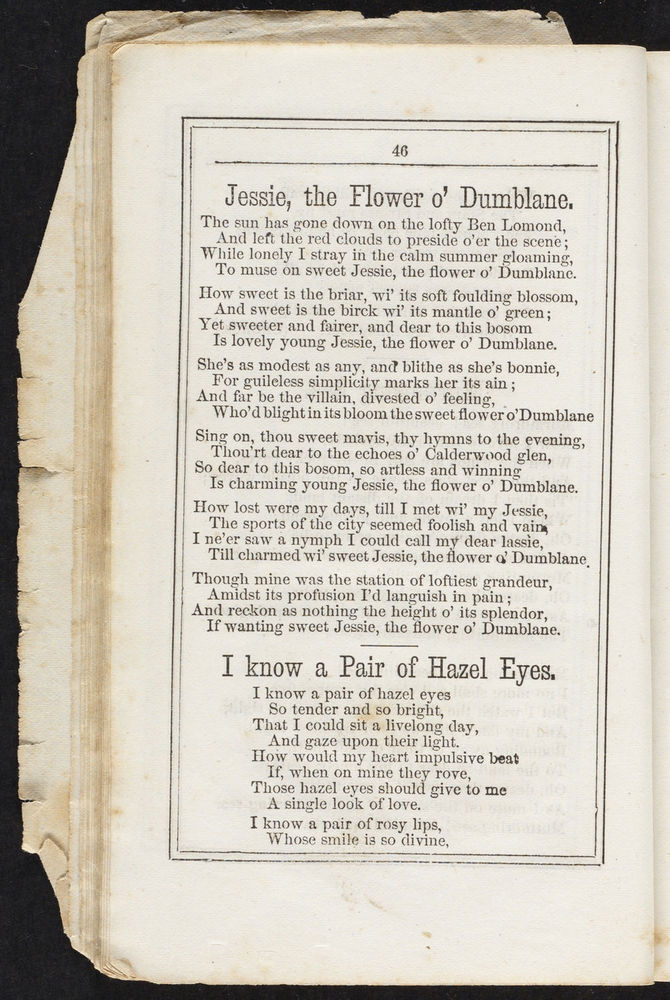 46
Jessie, the Flower o' Dumblane.
The sun has gone down on the lofty Ben Lomond,
And left the red clouds to preside o'er the scene;
While lonely I stray in the calm summer gloaming,
To muse on sweet Jessie, the flower o' Dumblane.
How sweet is the briar, wi' its soft foulding blossom,
And sweet is the birck wi' its mantle o' green;
Yet sweeter and fairer, and dear to this bosom
Is lovely young Jessie, the flower o' Dumblane.
She's as modest as any, and blithe as she's bonnie,
For guileless simplicity marks her its ain;
And far be the villain, divested o' feeling,
Who'd blight in its bloom the sweet flower o' Dumblane
Sing on, thou sweet mavis, thy hymns to the evening,
Thou'rt dear to the echoes o' Calderwood glen,
So dear to this bosom, so artless and winning
Is charming young Jessie, the flower o' Dumblane.
How lost were my days, till I met wi' my Jessie,
The sports of the city seemed foolish and vain,
I ne'er saw a nymph I could call my dear lassie,
Till charmed wi' sweet Jessie, the flower o' Dumblane.
Though mine was the station of loftiest grandeur,
Amidst its profusion I'd languish in pain;
And reckon as nothing the height o' its splendor,
If wanting sweet Jessie, the flower o' Dumblane.
I know a Pair of Hazel Eyes.
I know a pair of hazel eyes
So tender and so bright,
That I could sit a livelong day,
And gaze upon their light.
How would my heart impulsive beat
If, when on mine they rove,
Those hazel eyes should give to me
A single look of love.
I know a pair of rosy lips,
Whose smile is so divine,